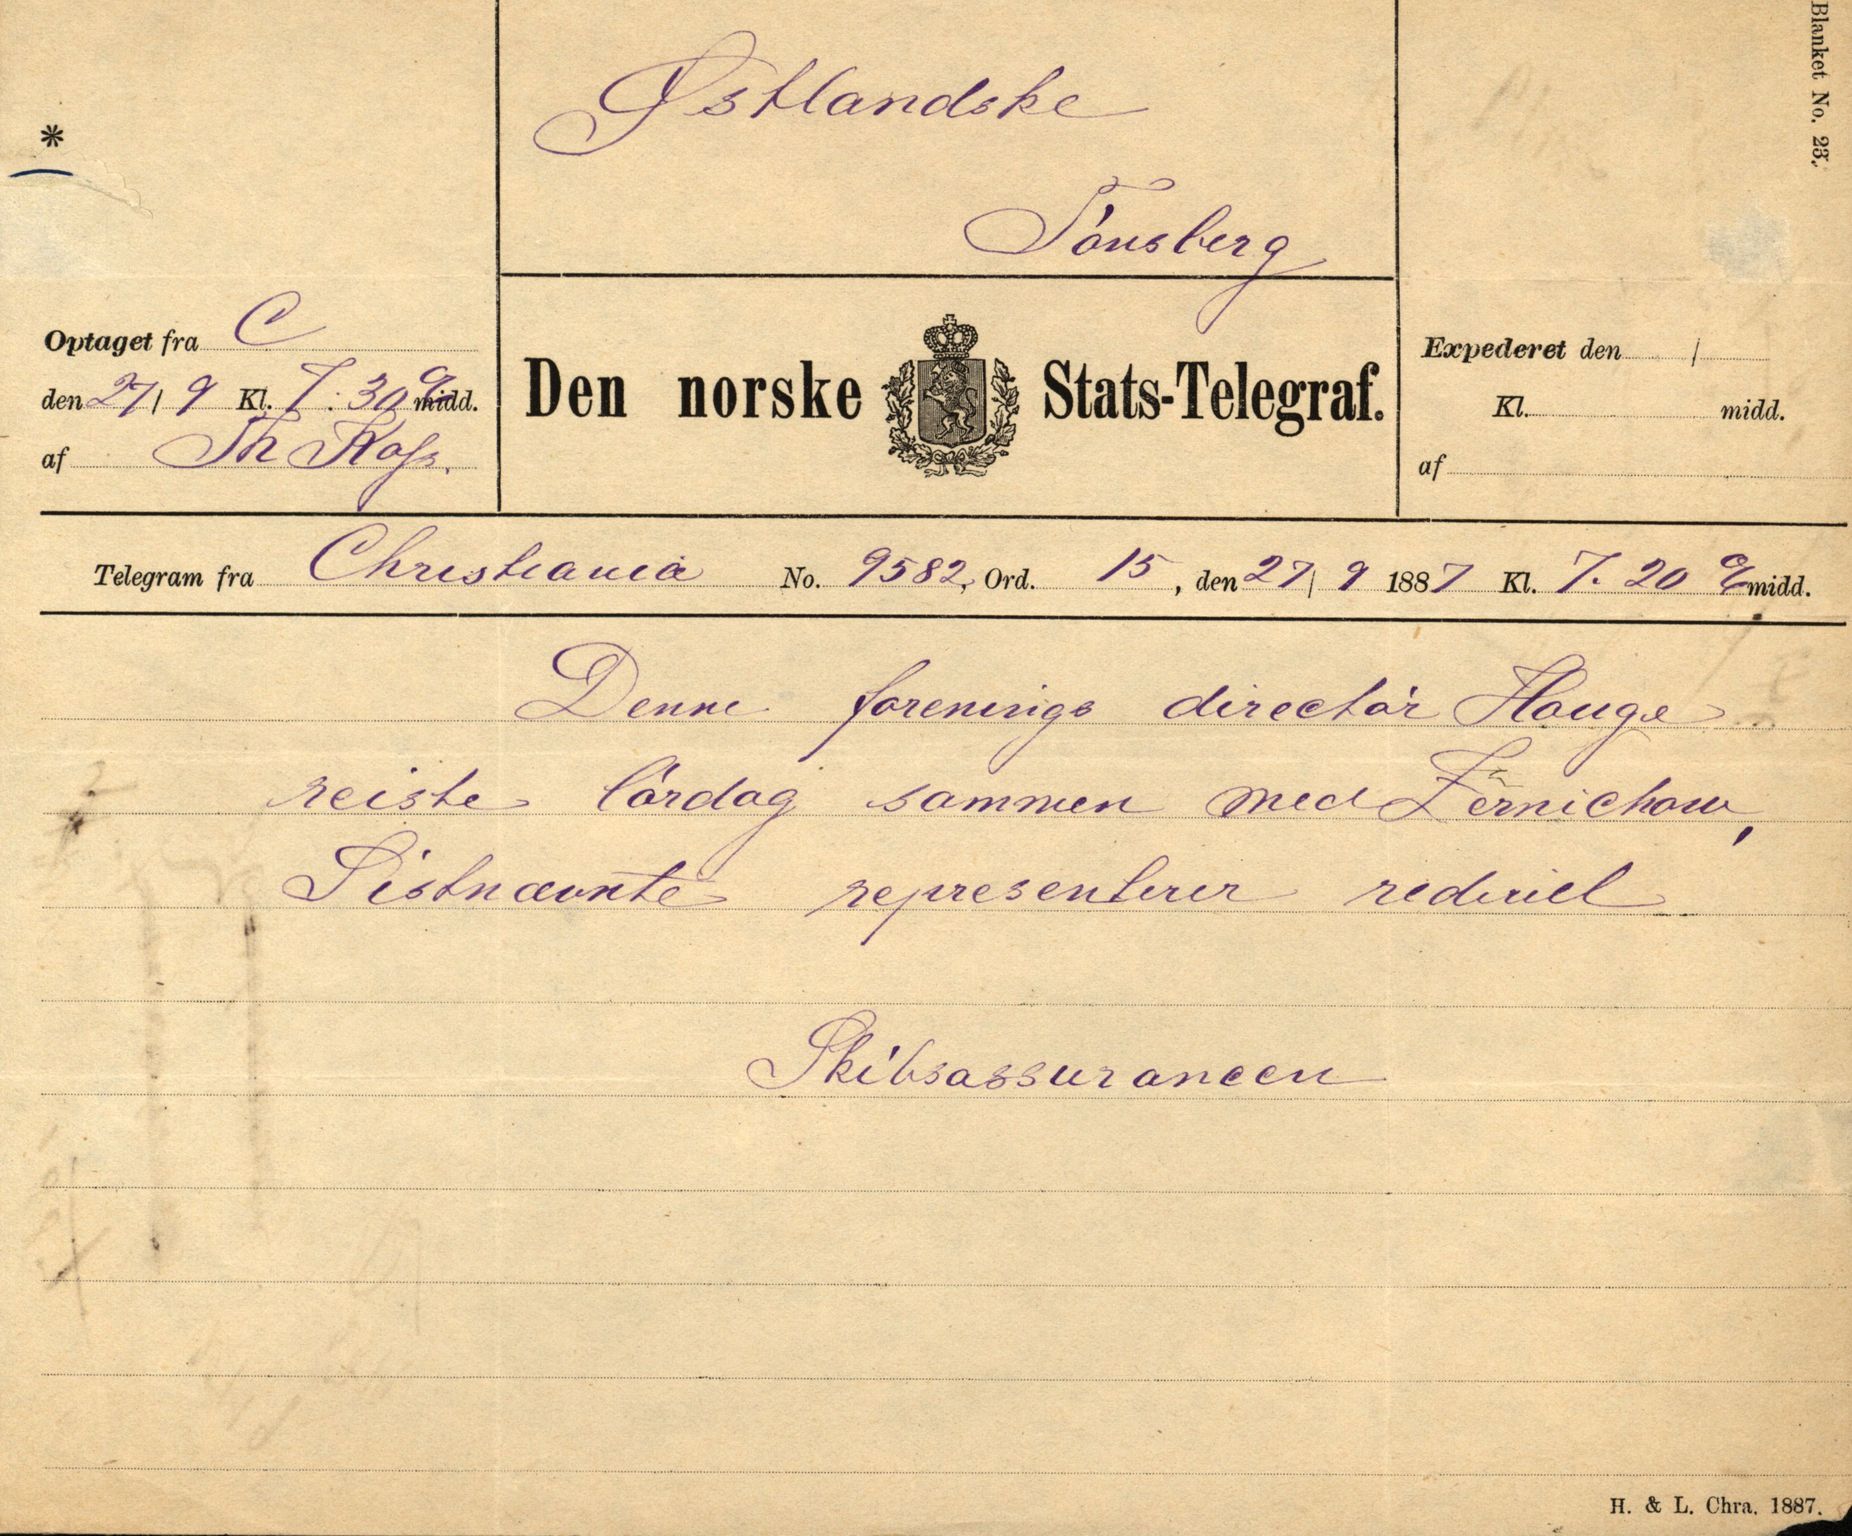 Blanket No. 23.
*
Østlandske
Tönsberg
Optaget fra C
den 27/9 Kl. 7:30 e midd.
af Th
Den norske Stats-Telegraf.
Expederet den /
Kl. midd.
af
Telegram fra Christiania No. 9582, Ord. 15, den 27/9 1887 Kl. 7.20 e midd.
Denne forenings directör Houge
reiste lördag sammen med Zernichow,
Sistnævnte representerer rederiet
Skibsassurancen
H. & L. Chra. 1887.